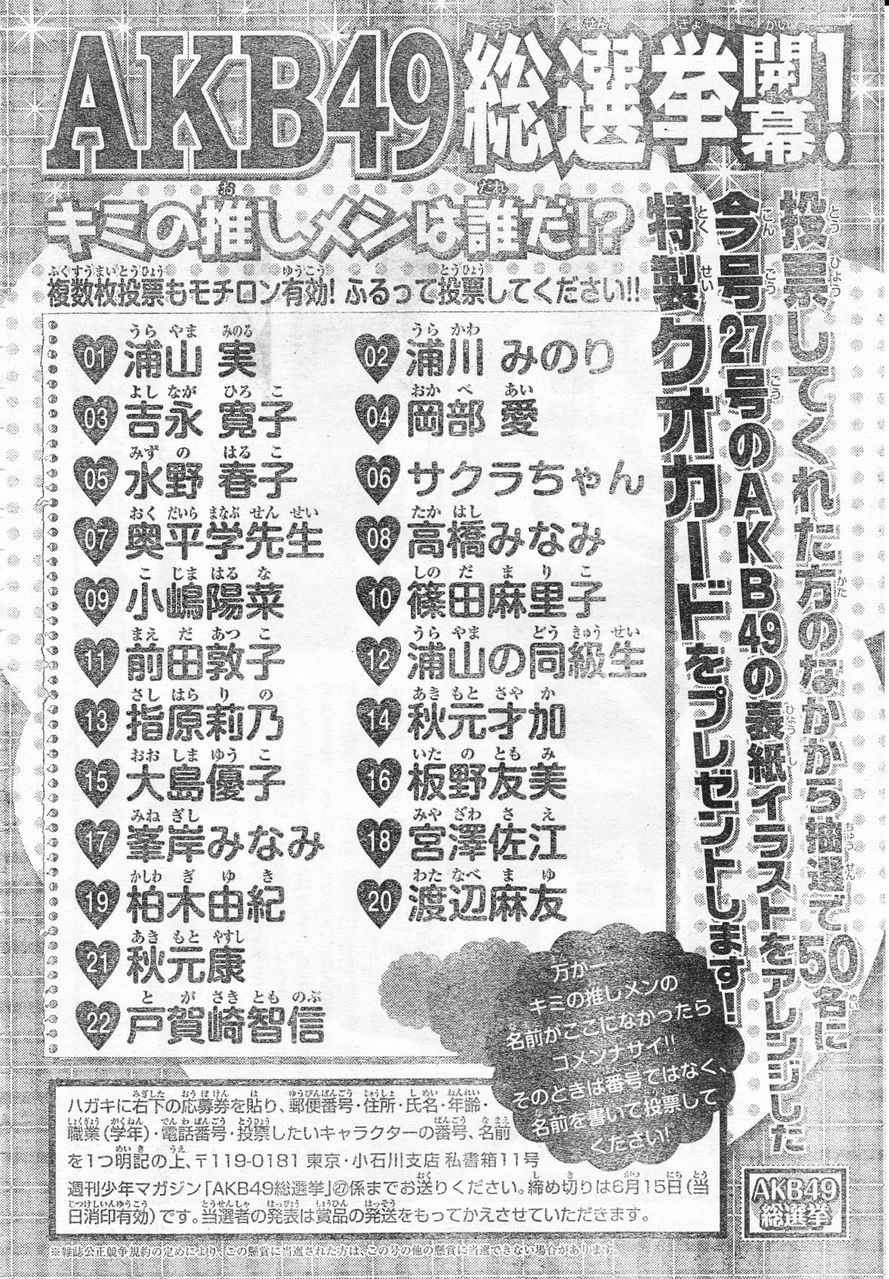 AKB49総選挙開幕!
キミの推しメンは誰だ!?
複数枚投票もモチロン有効! ふるって投票してください!!
投票してくれた方のなかから抽選で50名に
今号27号のAKB49の表紙イラストをアレンジした
特製クオカードをプレゼントします!
01 浦山 実
02 浦川 みのり
03 吉永 寛子
04 岡部 愛
05 水野 春子
06 サクラちゃん
07 奥平学先生
08 高橋みなみ
09 小嶋陽菜
10 篠田麻里子
11 前田敦子
12 浦山の同級生
13 指原莉乃
14 秋元才加
15 大島優子
16 板野友美
17 峯岸みなみ
18 宮澤佐江
19 柏木由紀
20 渡辺麻友
21 秋元康
22 戸賀崎智信
万が一
キミの推しメンの
名前がここになかったら
ゴメンナサイ!!
そのときは番号ではなく、
名前を書いて投票して
ください!
ハガキに右下の応募券を貼り、郵便番号・住所・氏名・年齢・
職業(学年)・電話番号・投票したいキャラクターの番号、名前
を1つ明記の上、〒119-0181 東京・小石川支店 私書箱11号
週刊少年マガジン「AKB49総選挙」㉗係までお送りください。締め切りは6月15日(当
日消印有効)です。当選者の発表は賞品の発送をもってかえさせていただきます。
AKB49
総選挙
※雑誌公正競争規約の定めにより、この懸賞に当選された方は、この号の他の懸賞に当選できない場合があります。